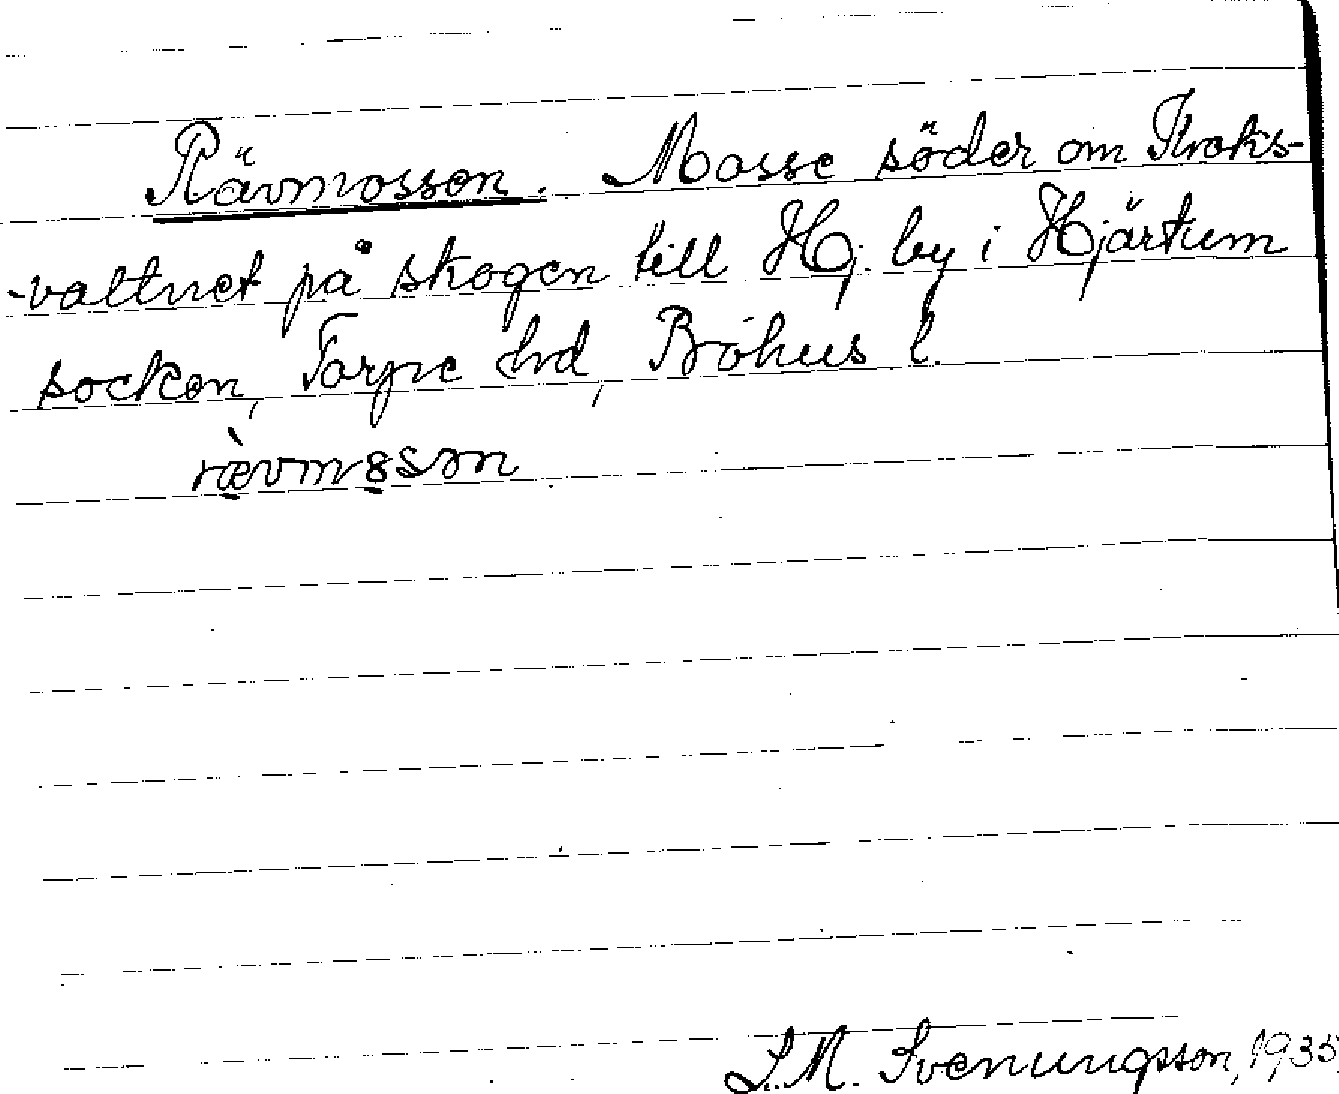 Rävmossen. Mosse söder om Kroks-
-vattnet på skogen till Hj. by i Hjärtum
socken, Torpe hd, Bohus l.
rævmɔsən
L.M. Svenungsson, 1935.